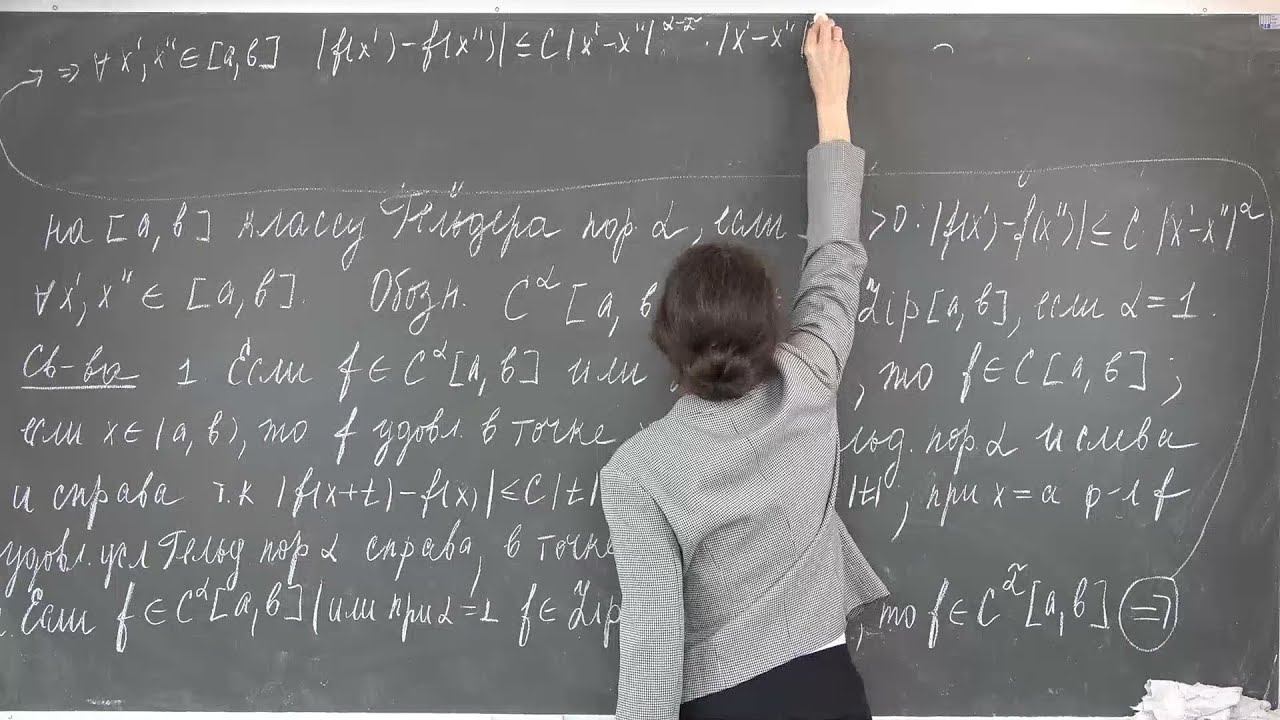 ⇒ ∀ x', x'' ∈ [a, b] |f(x') − f(x'')| ≤ C |x' − x''|^{α−α̃} · |x' − x''|
на [a, b] классу Гёльдера пор. α, если > 0: |f(x') − f(x'')| ≤ C |x' − x''|^α
∀ x', x'' ∈ [a, b]. Обозн. C^α [a, b Lip [a, b], если α = 1.
Св-ва 1. Если f ∈ C^α [a, b] или , то f ∈ C [a, b];
если x ∈ (a, b), то f удовл. в точке x льд. пор. α и слева
и справа т.к |f(x+t) − f(x)| ≤ C |t| |t|; при x = a ф-я f
удовл. усл Гельд пор α справа, в точке
. Если f ∈ C^α [a, b] (или при α = 1 f ∈ Lip , то f ∈ C^{α̃} [a, b] ⇒